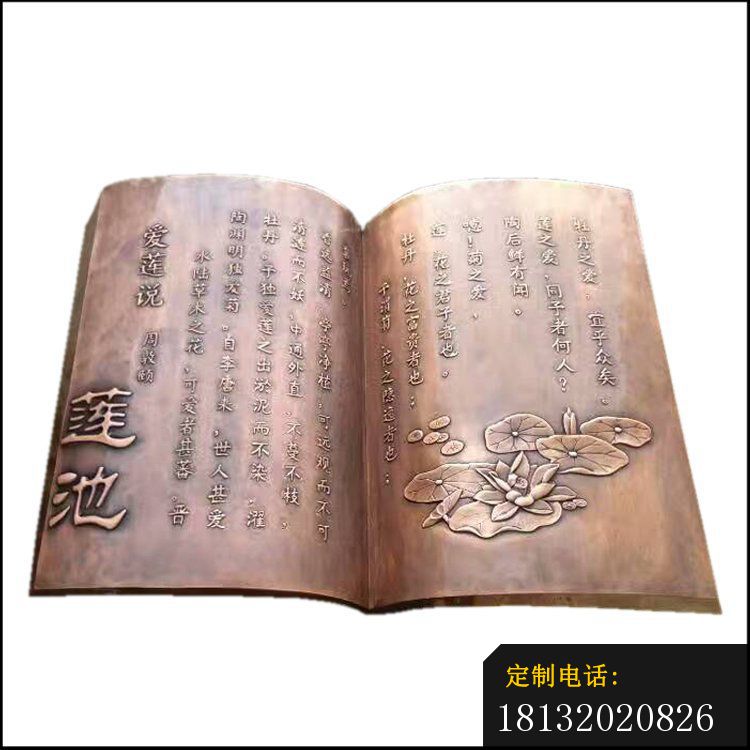 爱莲说
周敦颐
莲池
水陆草木之花，可爱者甚蕃。晋
陶渊明独爱菊。自李唐来，世人甚爱
牡丹。予独爱莲之出淤泥而不染，濯
清涟而不妖，中通外直，不蔓不枝，
香远益清，亭亭净植，可远观而不可
亵玩焉。
予谓菊，花之隐逸者也；
牡丹，花之富贵者也；
莲，花之君子者也。
噫！菊之爱，
陶后鲜有闻。
莲之爱，同予者何人？
牡丹之爱，宜乎众矣。
定制电话：
18132020826